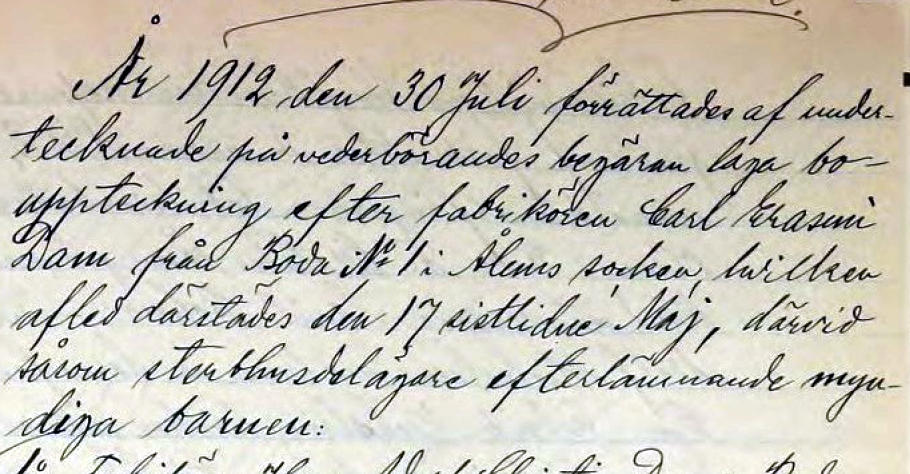 År 1912 den 30 Juli förrättades af under-
tecknade på vederbörandes begäran laga bo-
uppteckning efter fabrikören Carl Erasmi
Dam från Boda № 1 i Ålems socken, hvilken
afled därstädes den 17 sistlidne Maj, därvid
såsom sterbhusdelägare efterlämnande myn-
diga barnen: